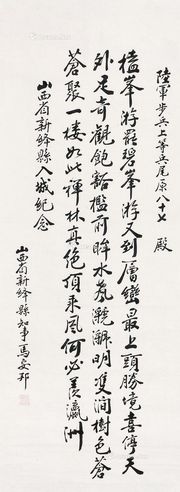 陸軍步兵上等兵尾原八十七 殿
榼峯游罷碧峯游又到層巒最上頭勝境喜停天
外足奇觀飽豁檻前眸水氣艷解明雙澗樹色蒼
蒼聚一樓如此禪林真絕頂乘風何必羨瀛洲
山西省新絳縣入城紀念
山西省新絳縣知事馬安邦